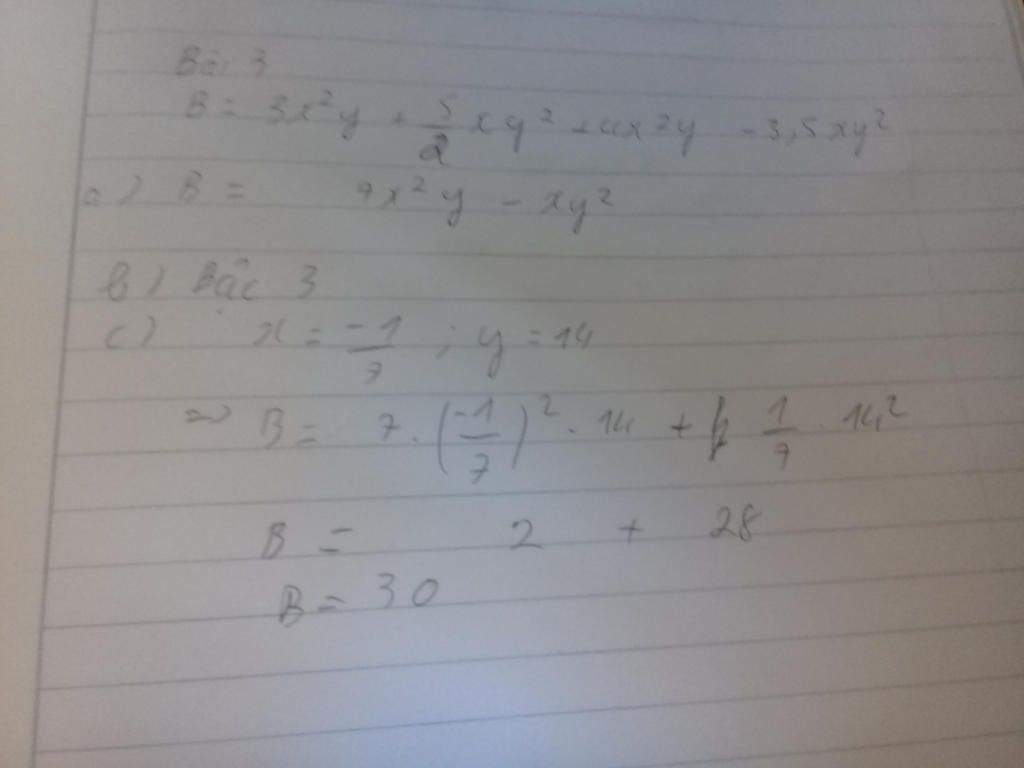 Bài 3
B = 3x²y + 5/2 xy² + 4x²y - 3,5xy²
a) B = 7x²y - xy²
b) Bậc 3
c) x = -1/7 ; y = 14
=> B = 7 . (-1/7)² . 14 + 1/7 . 14²
B = 2 + 28
B = 30